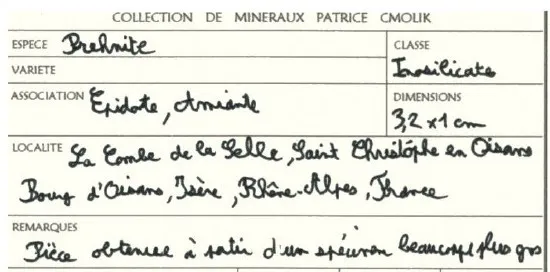 COLLECTION DE MINERAUX PATRICE CMOLIK
ESPECE Prehnite
CLASSE
Inosilicates
VARIETE
ASSOCIATION Epidote, Amiante
DIMENSIONS
3,2 x 1 cm
LOCALITE La Combe de la Selle, Saint Christôphe en Oisans
Bourg d'Oisans, Isère, Rhône-Alpes, France
REMARQUES
Pièce obtenue à partir d'un spécimen beaucoup plus gros